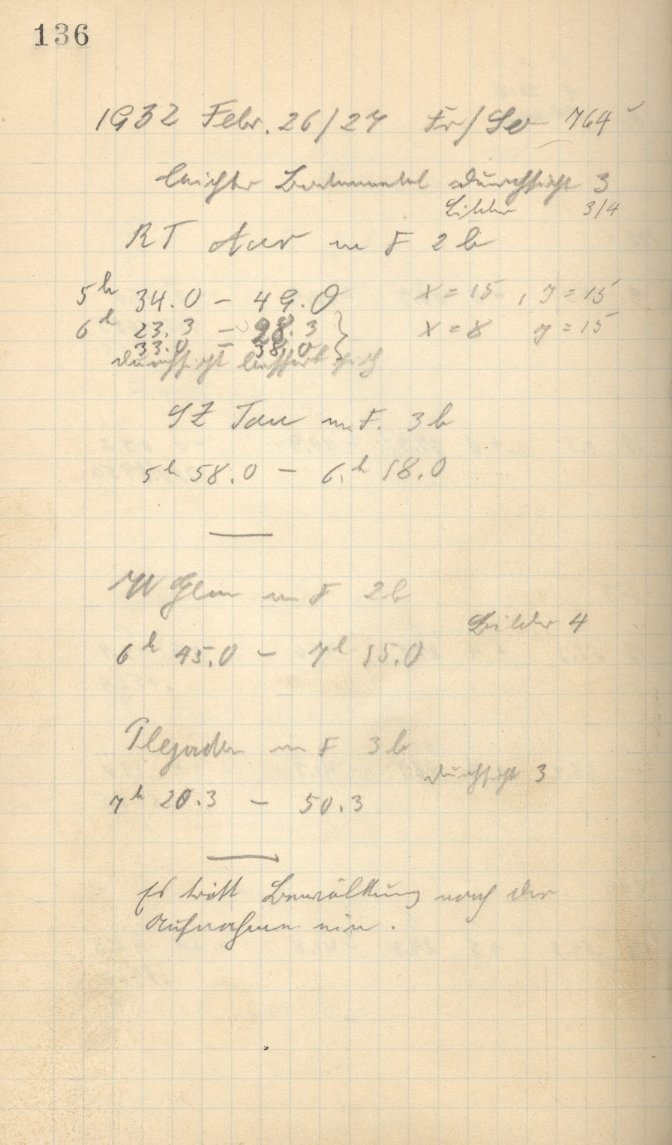 136
1932 Febr. 26/27 Fr/So 764
leichter Bodennebel Durchsicht 3
Bilder 3/4
RT Aur m F 2b
5h 34.0 – 49.0 x = 15, y = 15
6h 23.3 – 28.3 x = 8 y = 15
33.0 – 38.0
Durchsicht bessert sich
SZ Tau m F. 3b
5h 58.0 – 6h 18.0
W Gem m F 2b
Bilder 4
6h 45.0 – 7h 15.0
Plejaden m F 3b
Durchsicht 3
7h 20.3 – 50.3
Es tritt Bewölkung nach der
Aufnahme ein.